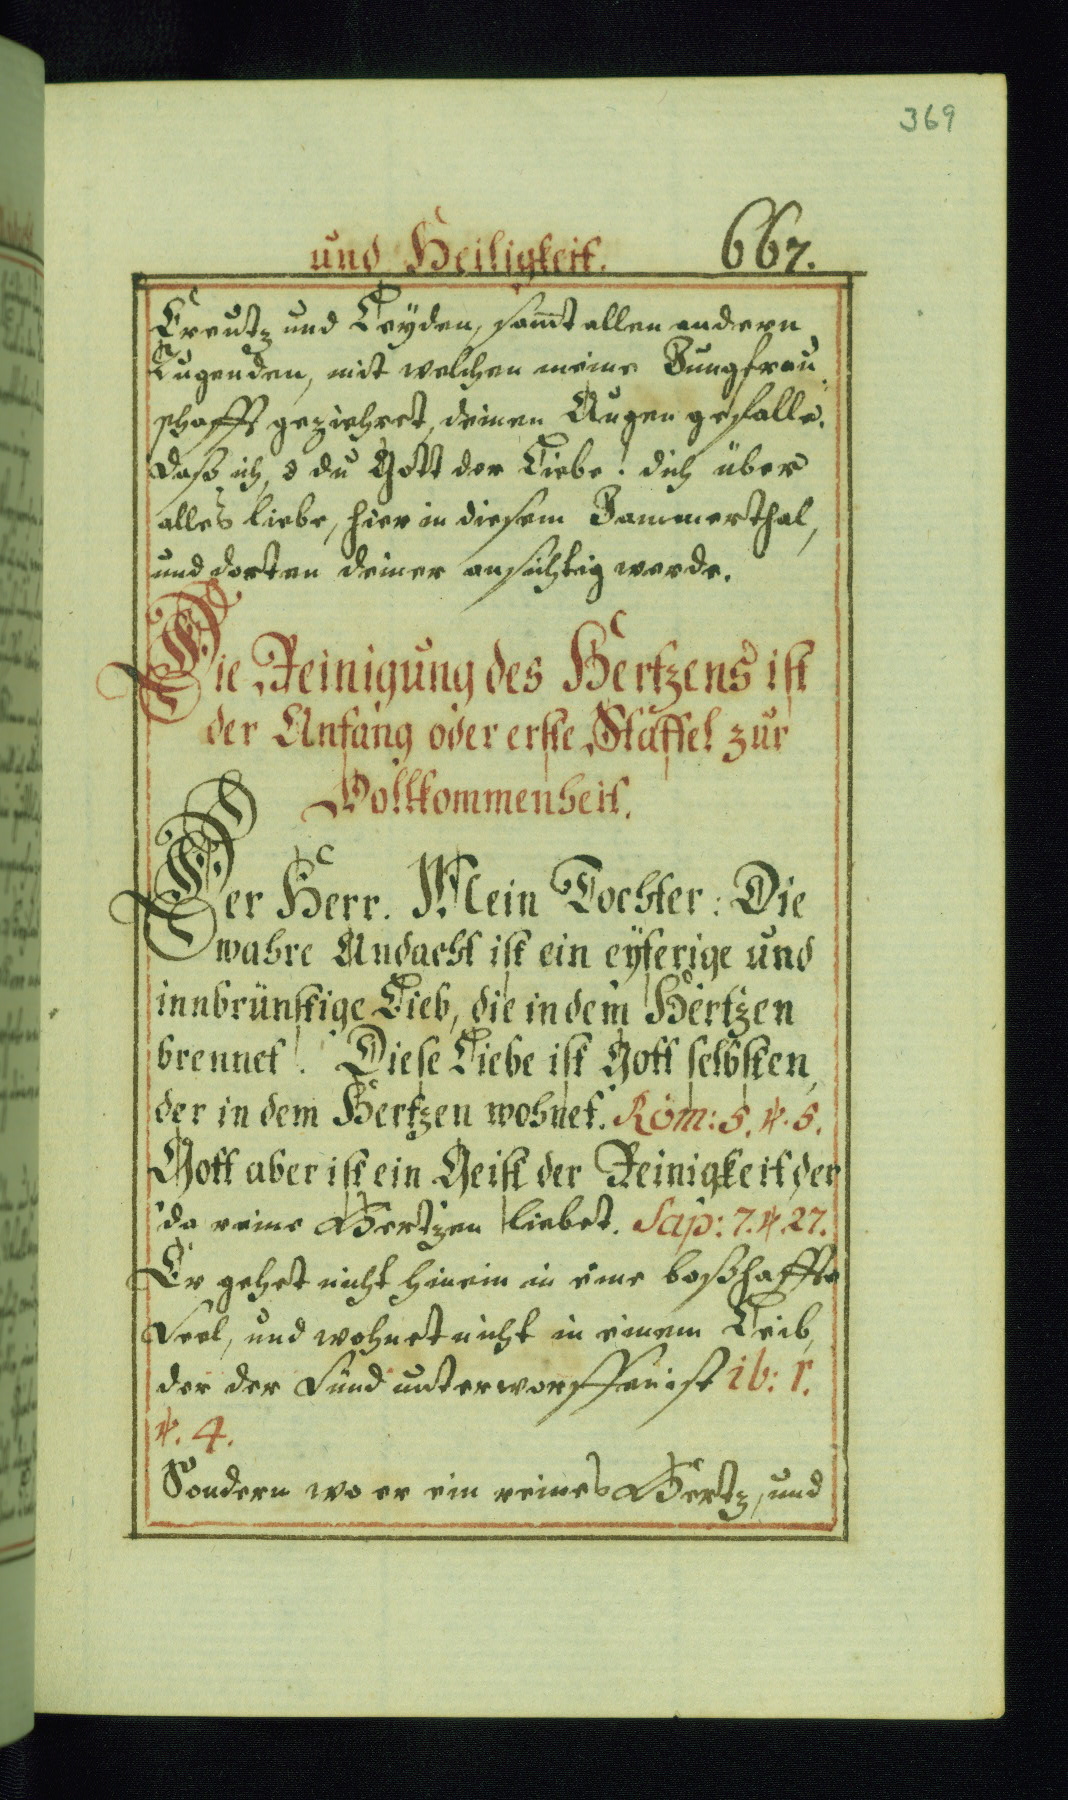 369
und Heiligkeit. 667.
Creutz und Leÿden, sam̄t allen andern
Tugenden, mit welchen meine Jungfrau„
schafft geziehret, deinen Augen gefalle.
daß ich, o du Gott der Liebe! dich über
alles liebe, hier in diesem Jammerthal,
und dorten deiner ansichtig werde.
Die Reinigung des Hertzens ist
der Anfang oder erste Staffel zur
Vollkommenheit.
Der Herr. Mein Tochter: Die
wahre Andacht ist ein eÿferige und
innbrünstige Lieb, die in dem Hertzen
brennet! Diese Liebe ist Gott selbsten,
der in dem Hertzen wohnet. Röm: 5. ℣. 5.
Gott aber ist ein Geist der Reinigkeit, der
da reine Hertzen liebet. Sap: 7. ℣. 27.
Er gehet nicht hinein in eine boßhaffte
Seel, und wohnet nicht in einem Leib,
der der Sünd unterworffen ist ib: 1.
℣. 4.
Sondern wo er ein reines Hertz, und